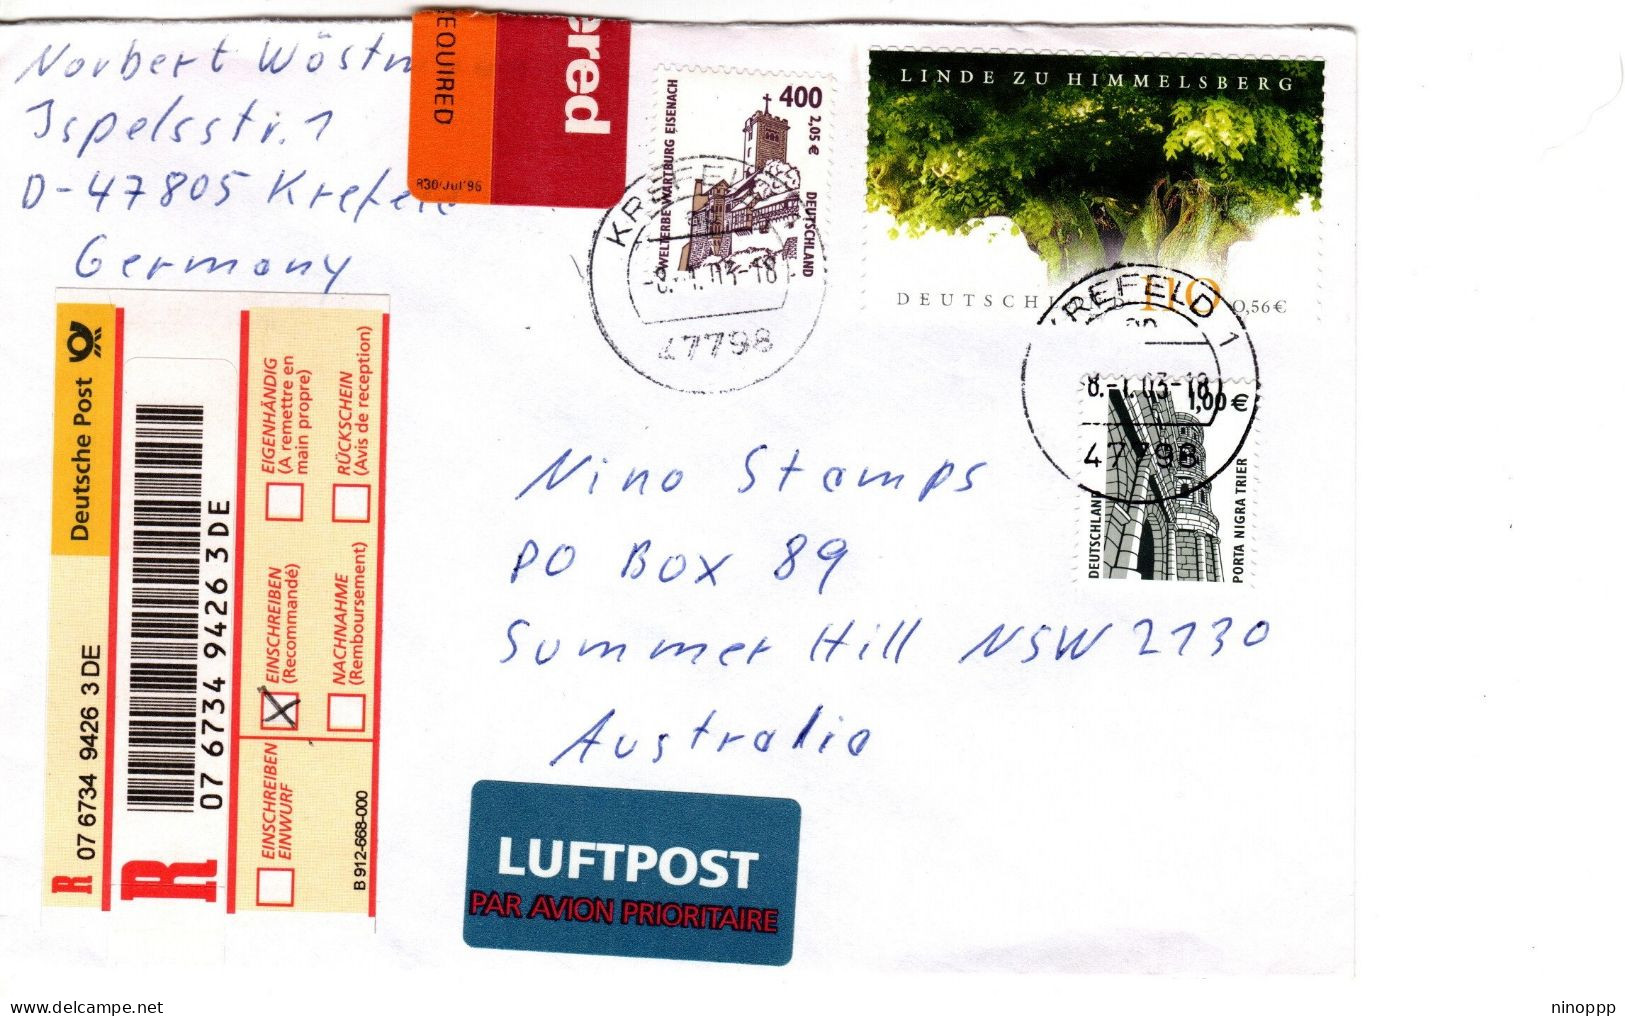 Norbert
Ispelsstr. 1
D-47805 Krefeld
Germany
EQUIRED
ered
R30/Jul'96
400
2,05 €
WELTERBE WARTBURG EISENACH
DEUTSCHLAND
KREFELD
8.-1.03-18
47798
LINDE ZU HIMMELSBERG
110
0,56 €
KREFELD 1
8.-1.03-18
47798
1,00 €
DEUTSCHLAND
PORTA NIGRA TRIER
Deutsche Post
R 07 6734 9426 3 DE
R
07 6734 9426 3 DE
EIGENHÄNDIG
(A remettre en
main propre)
RÜCKSCHEIN
(Avis de reception)
EINSCHREIBEN
(Recommandé)
NACHNAHME
(Remboursement)
EINSCHREIBEN
EINWURF
B 912-668-000
Nino Stamps
PO Box 89
Summer Hill NSW 2130
Australia
LUFTPOST
PAR AVION PRIORITAIRE
www.delcampe.net
ninoppp